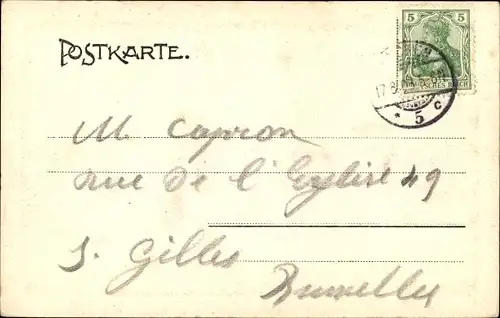 5 5
POSTKARTE.
DEUTSCHES REICH
17.8
* 5 c
M Capron
rue De l'Eglise 49
S. Gilles
Bruxelles